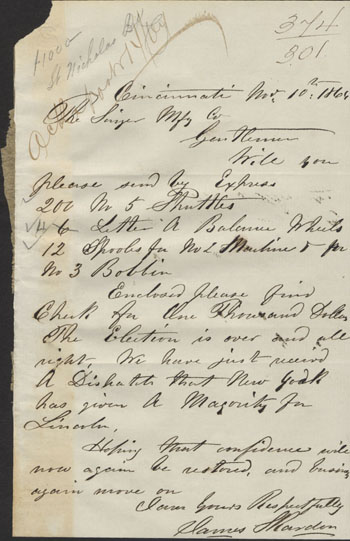 374
301
$1000
St Nicholas Bk
Cincinnati Nov. 10th 1864
The Singer Mfg Co
Gentlemen
Will you
please send by Express
200 No 5 Shuttles
6 Letter A Balance Wheels
12 Spools for No 2 Machine & for
No 3 Bobbin
Enclosed please find
Check for One Thousand Dollars
The Election is over and all
right, We have just received
A Dishatch that New York
has given A Magority for
Lincoln,
Hoping that confidence will
now again be restored, and business
again move on
Yours Respectfully
James Shardon